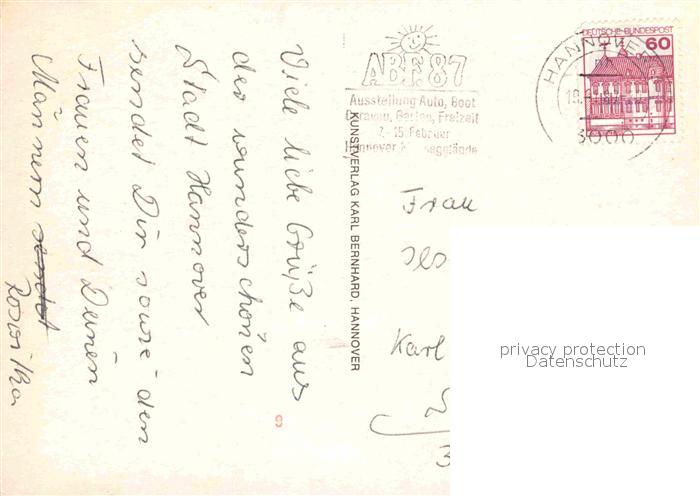 Viele liebe Grüße aus
der wunderschönen
Stadt Hannover
sendet Dir sowie den
Frauen und Deinen
Männern sendet
ABF 87
Ausstellung Auto, Boot
Caravan, Garten, Freizeit
7.-15. Februar
Hannover Messegelände
HANNOVER
3000
DEUTSCHE BUNDESPOST
60
KUNSTVERLAG KARL BERNHARD, HANNOVER
Frau
Karl
9
privacy protection
Datenschutz